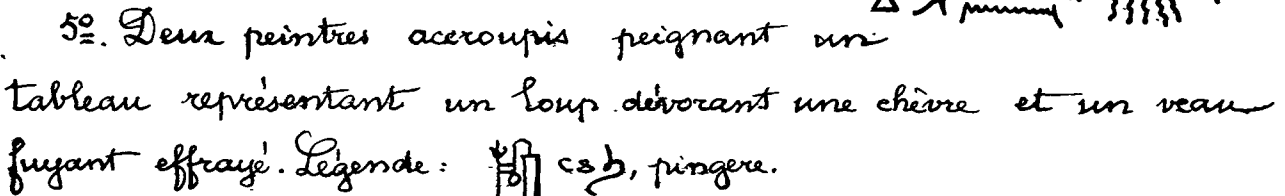 5º. Deux peintres accroupis peignant un
tableau représentant un loup dévorant une chèvre et un veau
fuyant effrayé. Légende : csh, pingere.